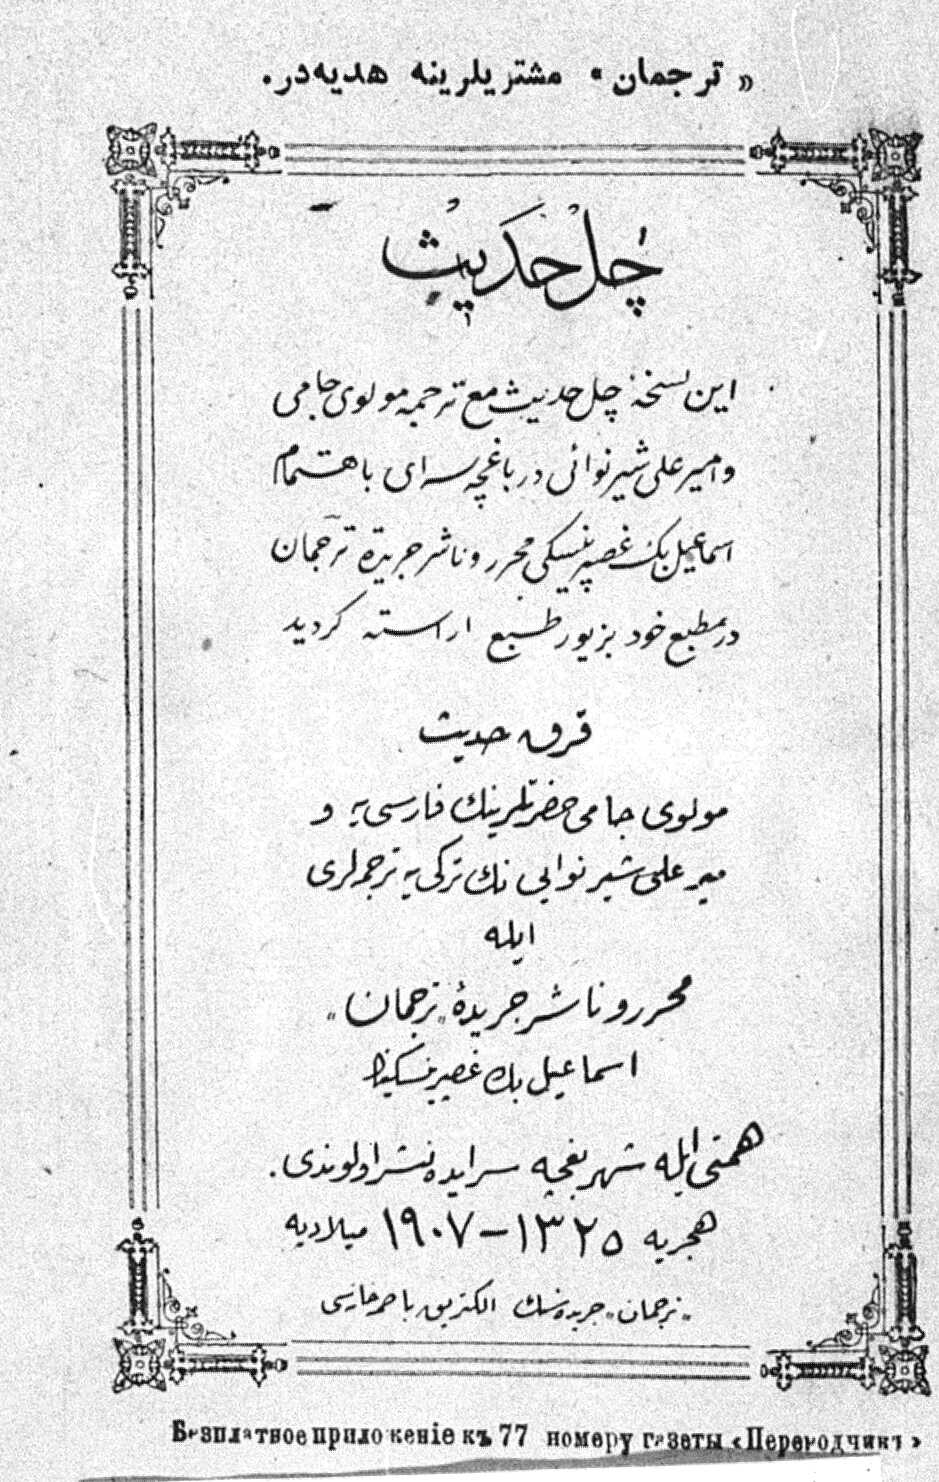 « ترجمان » مشتریلرینه هدیه‌در.
چل حدیث
این نسخهٔ چل حدیث مع ترجمه مولوی جامی
و امیر علی شیر نوائی در باغچه سرای باهتمام
اسماعیل بک غصپرینسکی محرر و ناشر جریدۀ ترجمان
در مطبع خود بزیور طبع اراسته کردید
قرق حدیث
مولوی جامی حضرتلرینك فارسی‌یه و
میر علی شیر نوایی نك ترکی‌یه ترجمه‌لری
ایله
محرر و ناشر جریدۀ „ترجمان„
اسماعیل بك غصپرینسکینڭ
همتی ایله شهر بغچه سرایده نشر اولوندی.
هجریه ١٣٢٥–١٩٠٧ میلادیه
„ترجمان„ جریده‌سنك الکتریق باصمه‌خانه‌سی
Безплатное приложеніе къ 77 номеру газеты «Переводчикъ»